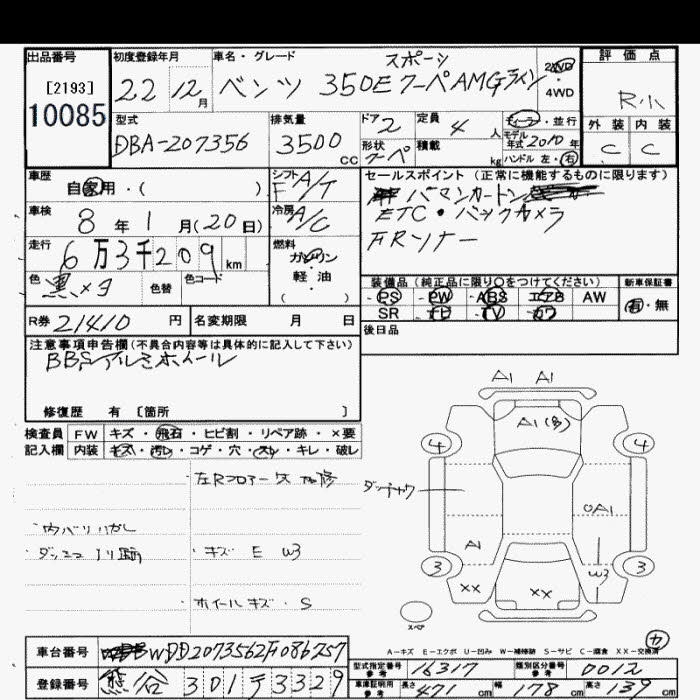 出品番号 初度登録年月 車名・グレード 評価点
[2193] 10085
22 12月 ベンツ 350E クーペAMGライン スポーツ
2WD 4WD
R小
型式 排気量 ドア 定員 ディーラー・並行 外装 内装
DBA-207356 3500cc 2 4人 モデル年式 2010年 C C
形状 クーペ 積載 kg ハンドル 左・右
車歴 シフト セールスポイント(正常に機能するものに限ります)
自家用・( ) F A/T
車検 8年1月(20日) 冷房 A/C
ETC・バックカメラ
走行 6万3千209km 燃料 ガソリン 軽・油 ( )
色 黒メタ 色替 色コード
装備品(純正品に限り○をつけてください) 新車保証書
PS PW ABS エアB AW 有・無
SR ナビ TV カワ
R券 21410円 名変期限 月 日
後日品
注意事項申告欄(不具合内容等は具体的に記入して下さい)
BBSアルミホイール
修復歴 有 〔箇所 〕
検査員 FW キズ・飛石・ヒビ割・リペア跡・×要
記入欄 内装 キズ・汚れ・コゲ・穴・スレ・キレ・破レ
キズ E W3
ホイールキズ・S
A1 A1
A1(多)
4 4
A1
A1
3 3
W3
XX XX
スペア
A-キズ E-エクボ U-凹み W-補修跡 S-サビ C-腐食 XX-交換済
カ
車台番号 WDD2073562F086757
登録番号 熊谷 301 テ 3329
型式指定番号 参考 16317 類別区分番号 参考 0012
車庫証明用 参考 長さ 471cm 幅 178cm 高さ 139cm